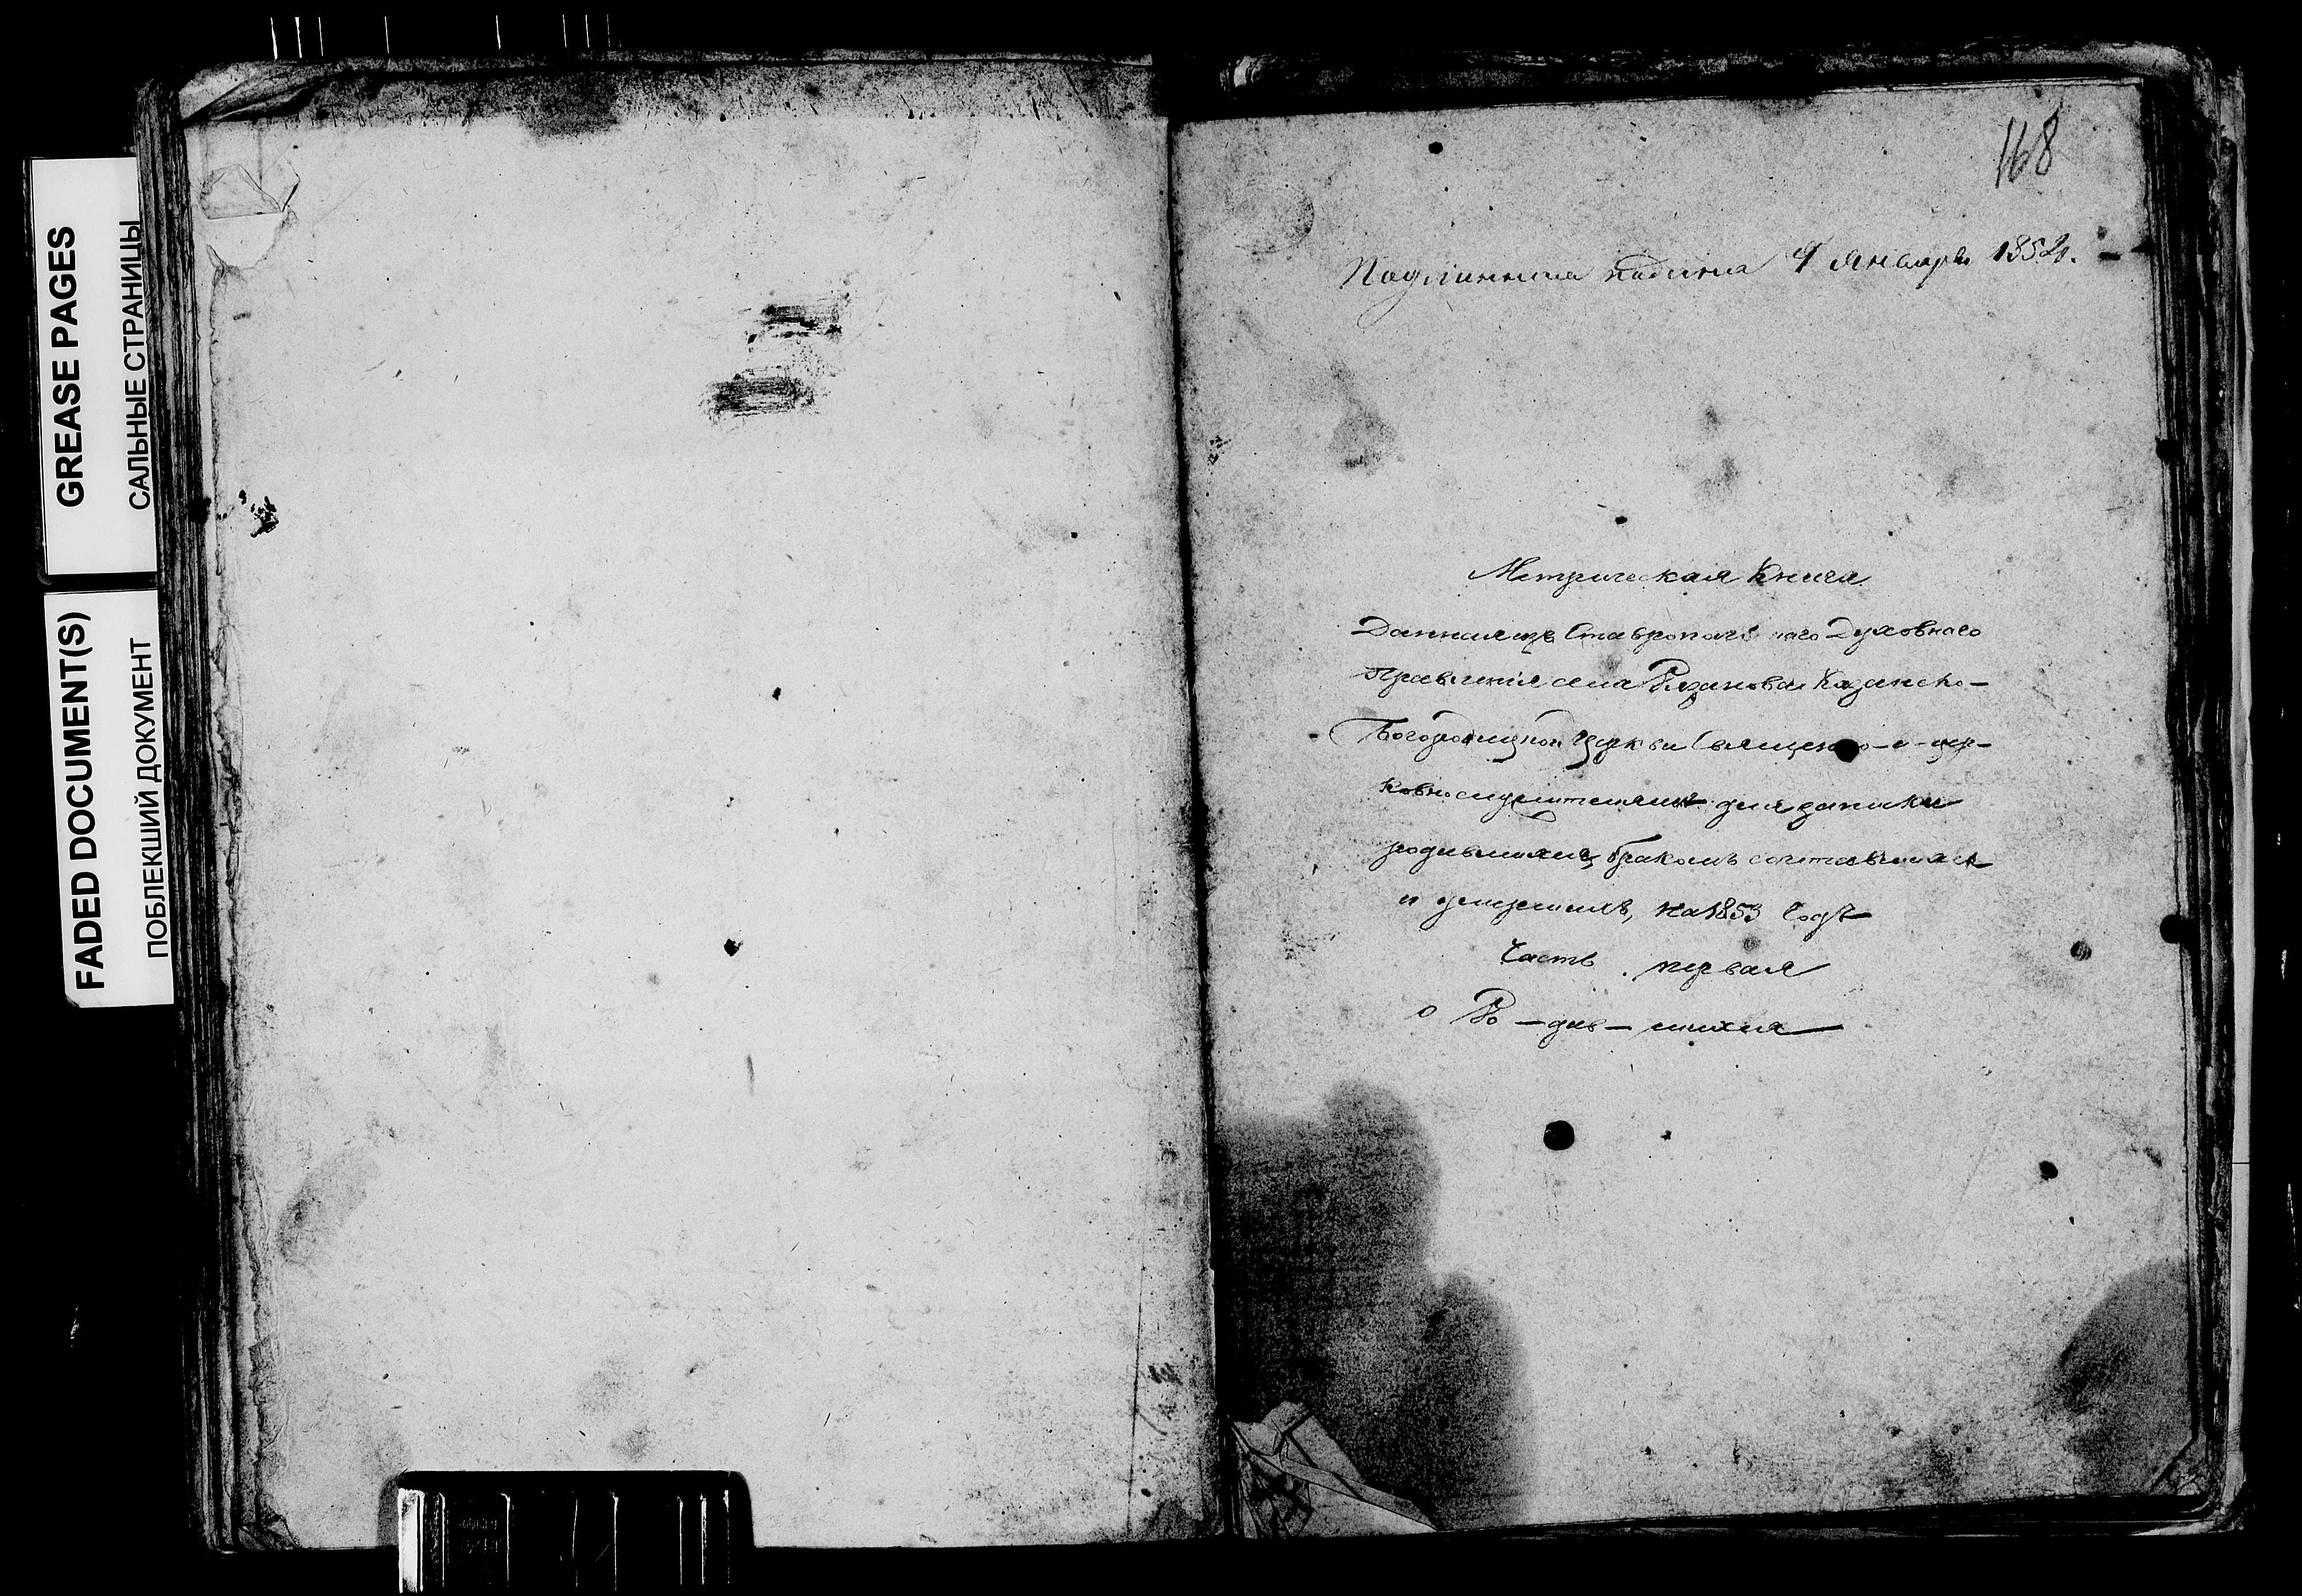 GREASE PAGES
САЛЬНЫЕ СТРАНИЦЫ
FADED DOCUMENT(S)
ПОБЛЕКШИЙ ДОКУМЕНТ
168
9 Января 1852
Метрическая Книга
Данная изъ Ставропольскаго Духовнаго
Правленія села Рязанова Казанско-
Богородицкой Церкви Священно-и-цер-
ковнослужителямъ для записки
родившихся, бракомъ сочетавшихся
и умершихъ, на 1853 Годъ
Часть первая
о Ро-див-шихся